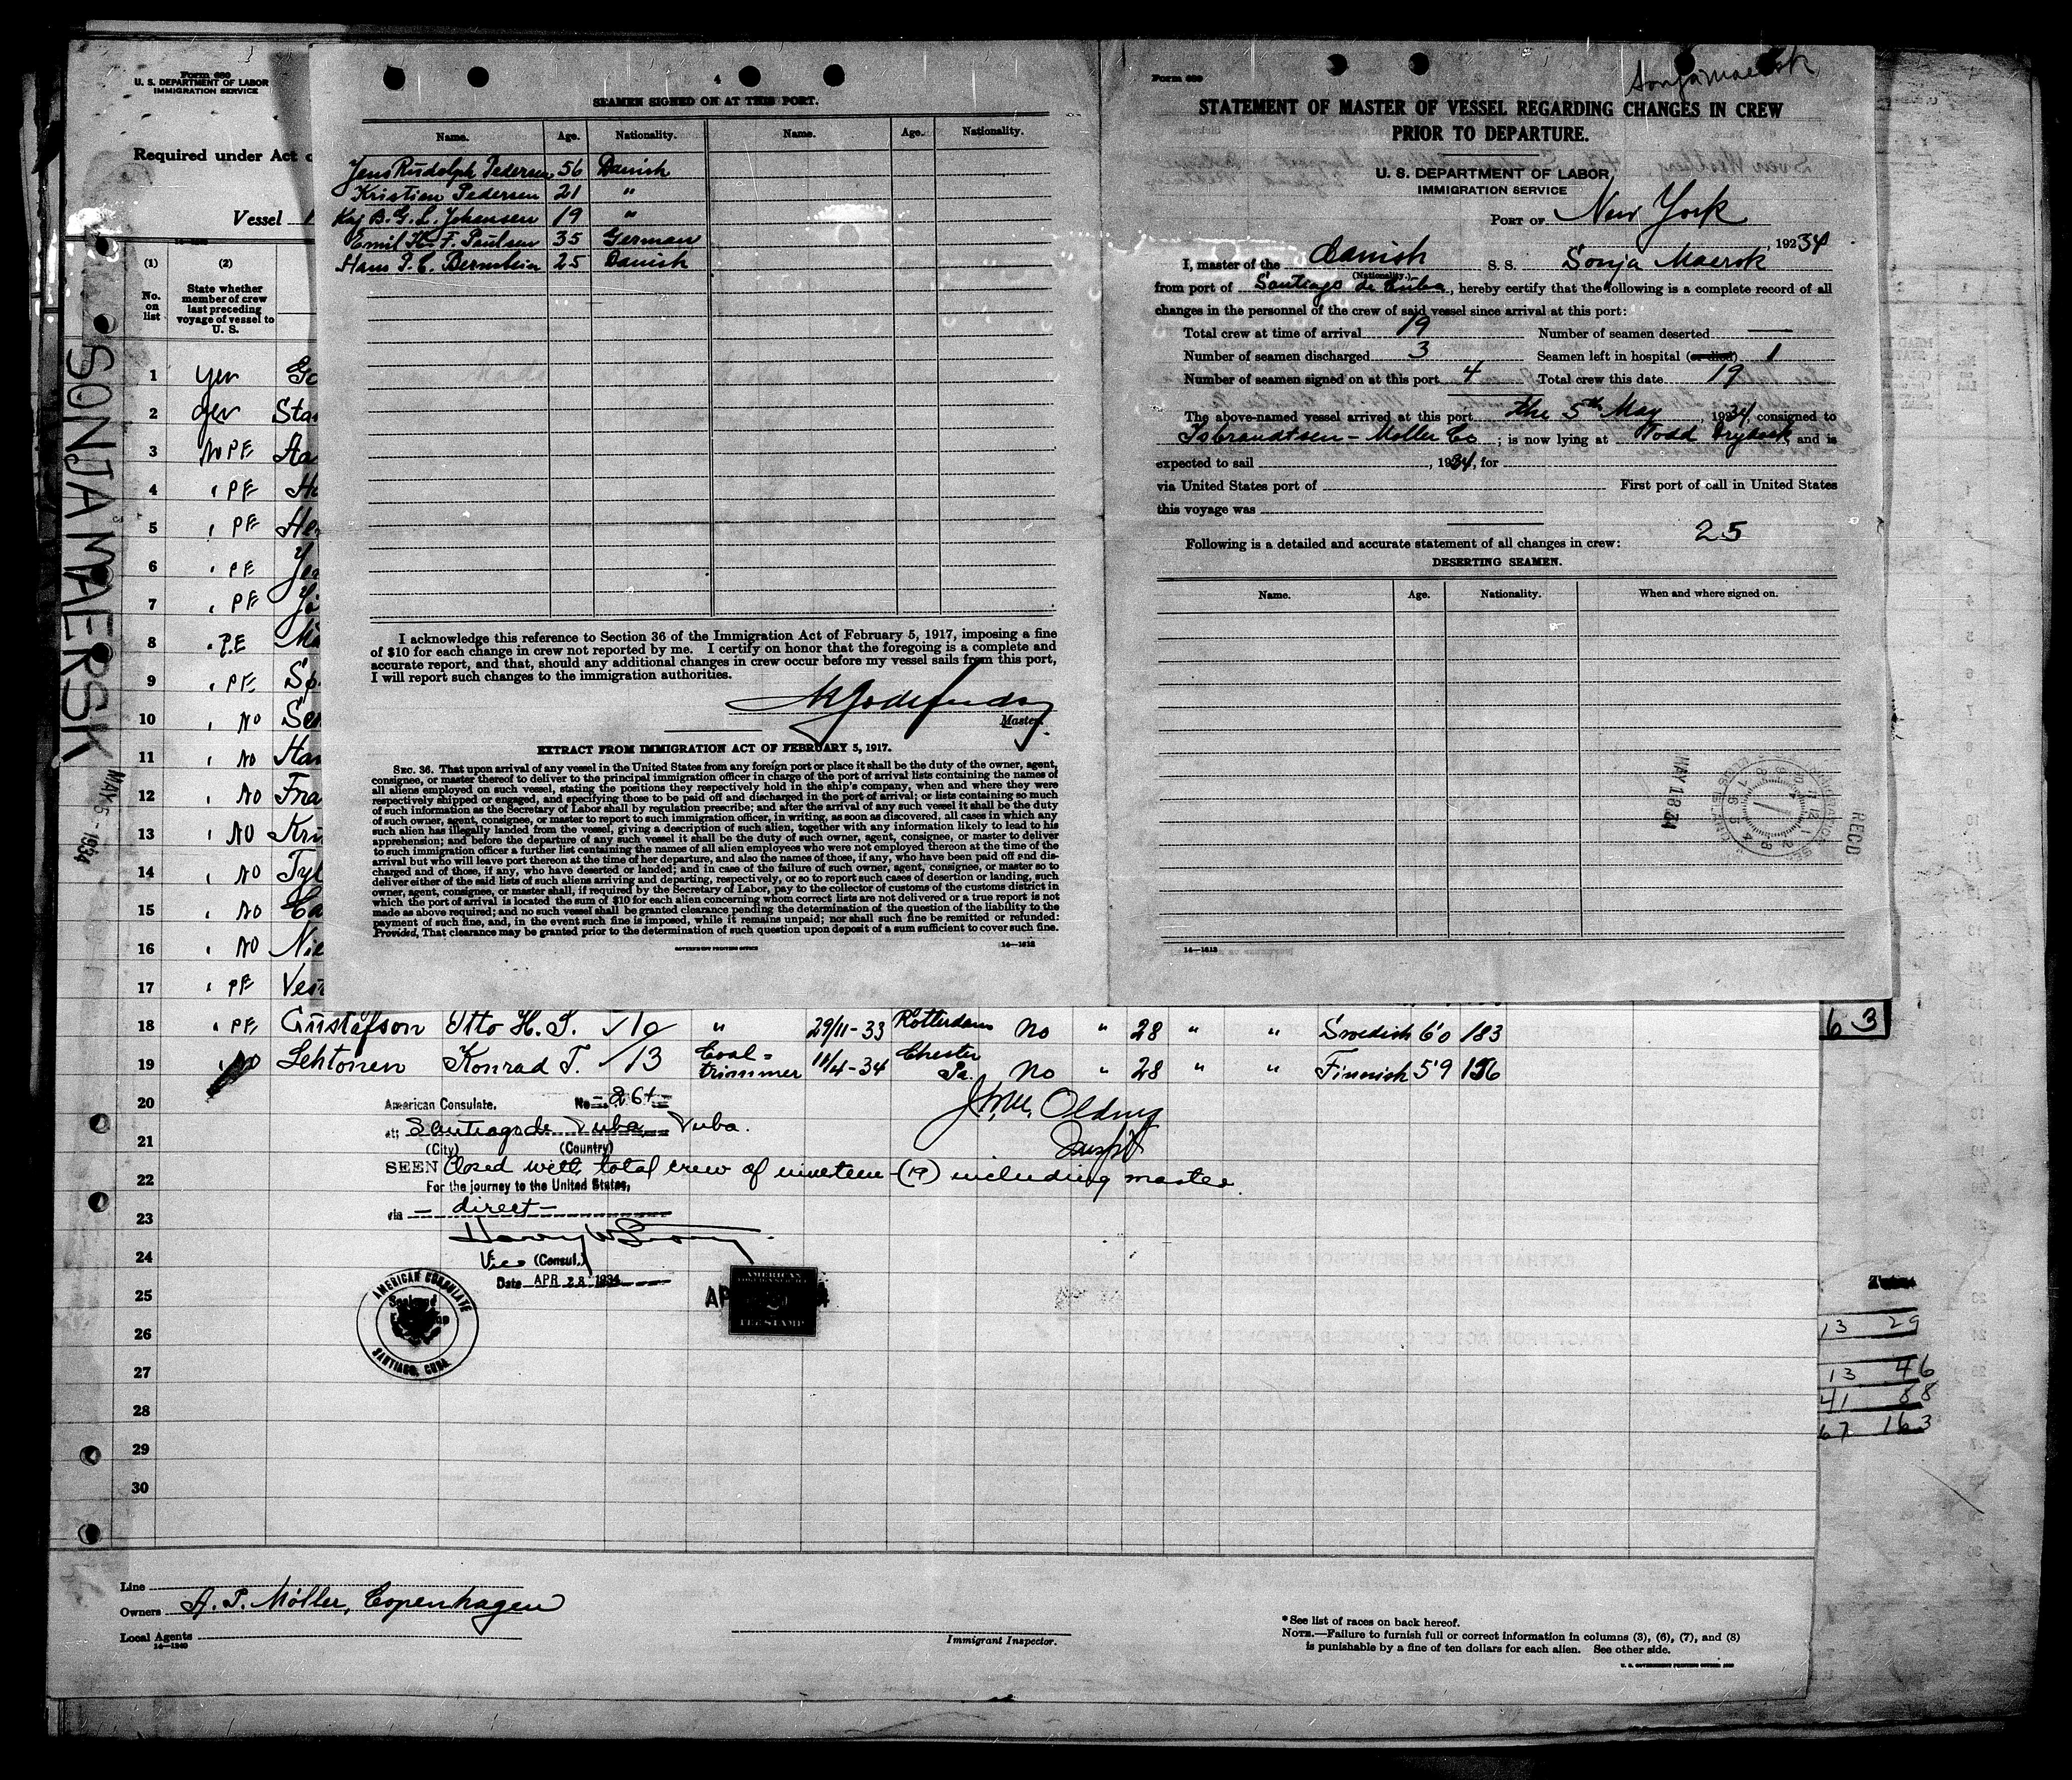 Form 680
U. S. DEPARTMENT OF LABOR
IMMIGRATION SERVICE
Required under Act
Vessel
(1) (2)
No. on list
State whether member of crew last preceding voyage of vessel to U. S.
1 yes
2 yes Sta
3 No PE
4 " PE
5 " PE
6 " PE
7 " PE
8 " P.E
9 " PE
10 " NO
11 " NO Han
12 " NO Fra
13 " NO
14 " NO
15 " NO
16 " NO Nie
17 " PE Vest
SONJA MAERSK
MAY 5 - 1934
4
SEAMEN SIGNED ON AT THIS PORT.
Name. Age. Nationality. Name. Age. Nationality.
Jens Rudolph Pedersen 56 Danish
Kristian Pedersen 21 "
Kaj B. G. L. Johansen 19 "
Emil H. F. Paulsen 35 German
Hans P. C. Bernstein 25 Danish
I acknowledge this reference to Section 36 of the Immigration Act of February 5, 1917, imposing a fine
of $10 for each change in crew not reported by me. I certify on honor that the foregoing is a complete and
accurate report, and that, should any additional changes in crew occur before my vessel sails from this port,
I will report such changes to the immigration authorities.
Master.
EXTRACT FROM IMMIGRATION ACT OF FEBRUARY 5, 1917.
SEC. 36. That upon arrival of any vessel in the United States from any foreign port or place it shall be the duty of the owner, agent,
consignee, or master thereof to deliver to the principal immigration officer in charge of the port of arrival lists containing the names of
all aliens employed on such vessel, stating the positions they respectively hold in the ship's company, when and where they were
respectively shipped or engaged, and specifying those to be paid off and discharged in the port of arrival; or lists containing so much
of such information as the Secretary of Labor shall by regulation prescribe; and after the arrival of any such vessel it shall be the duty
of such owner, agent, consignee, or master to report to such immigration officer, in writing, as soon as discovered, all cases in which any
such alien has illegally landed from the vessel, giving a description of such alien, together with any information likely to lead to his
apprehension; and before the departure of any such vessel it shall be the duty of such owner, agent, consignee, or master to deliver
to such immigration officer a further list containing the names of all alien employees who were not employed thereon at the time of the
arrival but who will leave port thereon at the time of her departure, and also the names of those, if any, who have been paid off and dis-
charged and of those, if any, who have deserted or landed; and in case of the failure of such owner, agent, consignee, or master so to
deliver either of the said lists of such aliens arriving and departing, respectively, or so to report such cases of desertion or landing, such
owner, agent, consignee, or master shall, if required by the Secretary of Labor, pay to the collector of customs of the customs district in
which the port of arrival is located the sum of $10 for each alien concerning whom correct lists are not delivered or a true report is not
made as above required; and no such vessel shall be granted clearance pending the determination of the question of the liability to the
payment of such fine, and, in the event such fine is imposed, while it remains unpaid; nor shall such fine be remitted or refunded:
Provided, That clearance may be granted prior to the determination of such question upon deposit of a sum sufficient to cover such fine.
GOVERNMENT PRINTING OFFICE 14—1612
Form 689
Sonja Maersk
STATEMENT OF MASTER OF VESSEL REGARDING CHANGES IN CREW
PRIOR TO DEPARTURE.
U. S. DEPARTMENT OF LABOR,
IMMIGRATION SERVICE
PORT OF New York
19234
I, master of the Danish S. S. Sonja Maersk
(Nationality.)
from port of Santiago de Cuba, hereby certify that the following is a complete record of all
changes in the personnel of the crew of said vessel since arrival at this port:
Total crew at time of arrival 19 Number of seamen deserted —
Number of seamen discharged 3 Seamen left in hospital (or died) 1
Number of seamen signed on at this port 4 Total crew this date 19
The above-named vessel arrived at this port the 5th May, 1934, consigned to
Isbrandtsen - Moller Co; is now lying at Todd Drydock and is
expected to sail , 1934, for
via United States port of First port of call in United States
this voyage was
25
Following is a detailed and accurate statement of all changes in crew:
DESERTING SEAMEN.
Name. Age. Nationality. When and where signed on.
MAY 18 34
REC'D
14—1612
18 " PE Gustafson Otto H. S. √10 " 29/11-33 Rotterdam No " 28 " " Swedish 6'0 183
19 " NO Lehtonen Konrad T. √13 Coal= trimmer 11/4-34 Chester Pa. No " 28 " " Finnish 5'9 156
63
20
21
22
23
24
25
26
27
28
29
30
American Consulate. No. 264
at Santiago de Cuba Cuba.
(City) (Country)
SEEN Closed with total crew of nineteen-(19) including master.
For the journey to the United States,
via — direct —
Vice (Consul.)
Date APR 28 1934
AMERICAN CONSULATE
SANTIAGO, CUBA.
AMERICAN
FEE STAMP
13 29
13 46
41 88
67 163
Line
Owners A. P. Möller, Copenhagen
Local Agents
14—1240
Immigrant Inspector.
*See list of races on back hereof.
NOTE.—Failure to furnish full or correct information in columns (3), (6), (7), and (8)
is punishable by a fine of ten dollars for each alien. See other side.